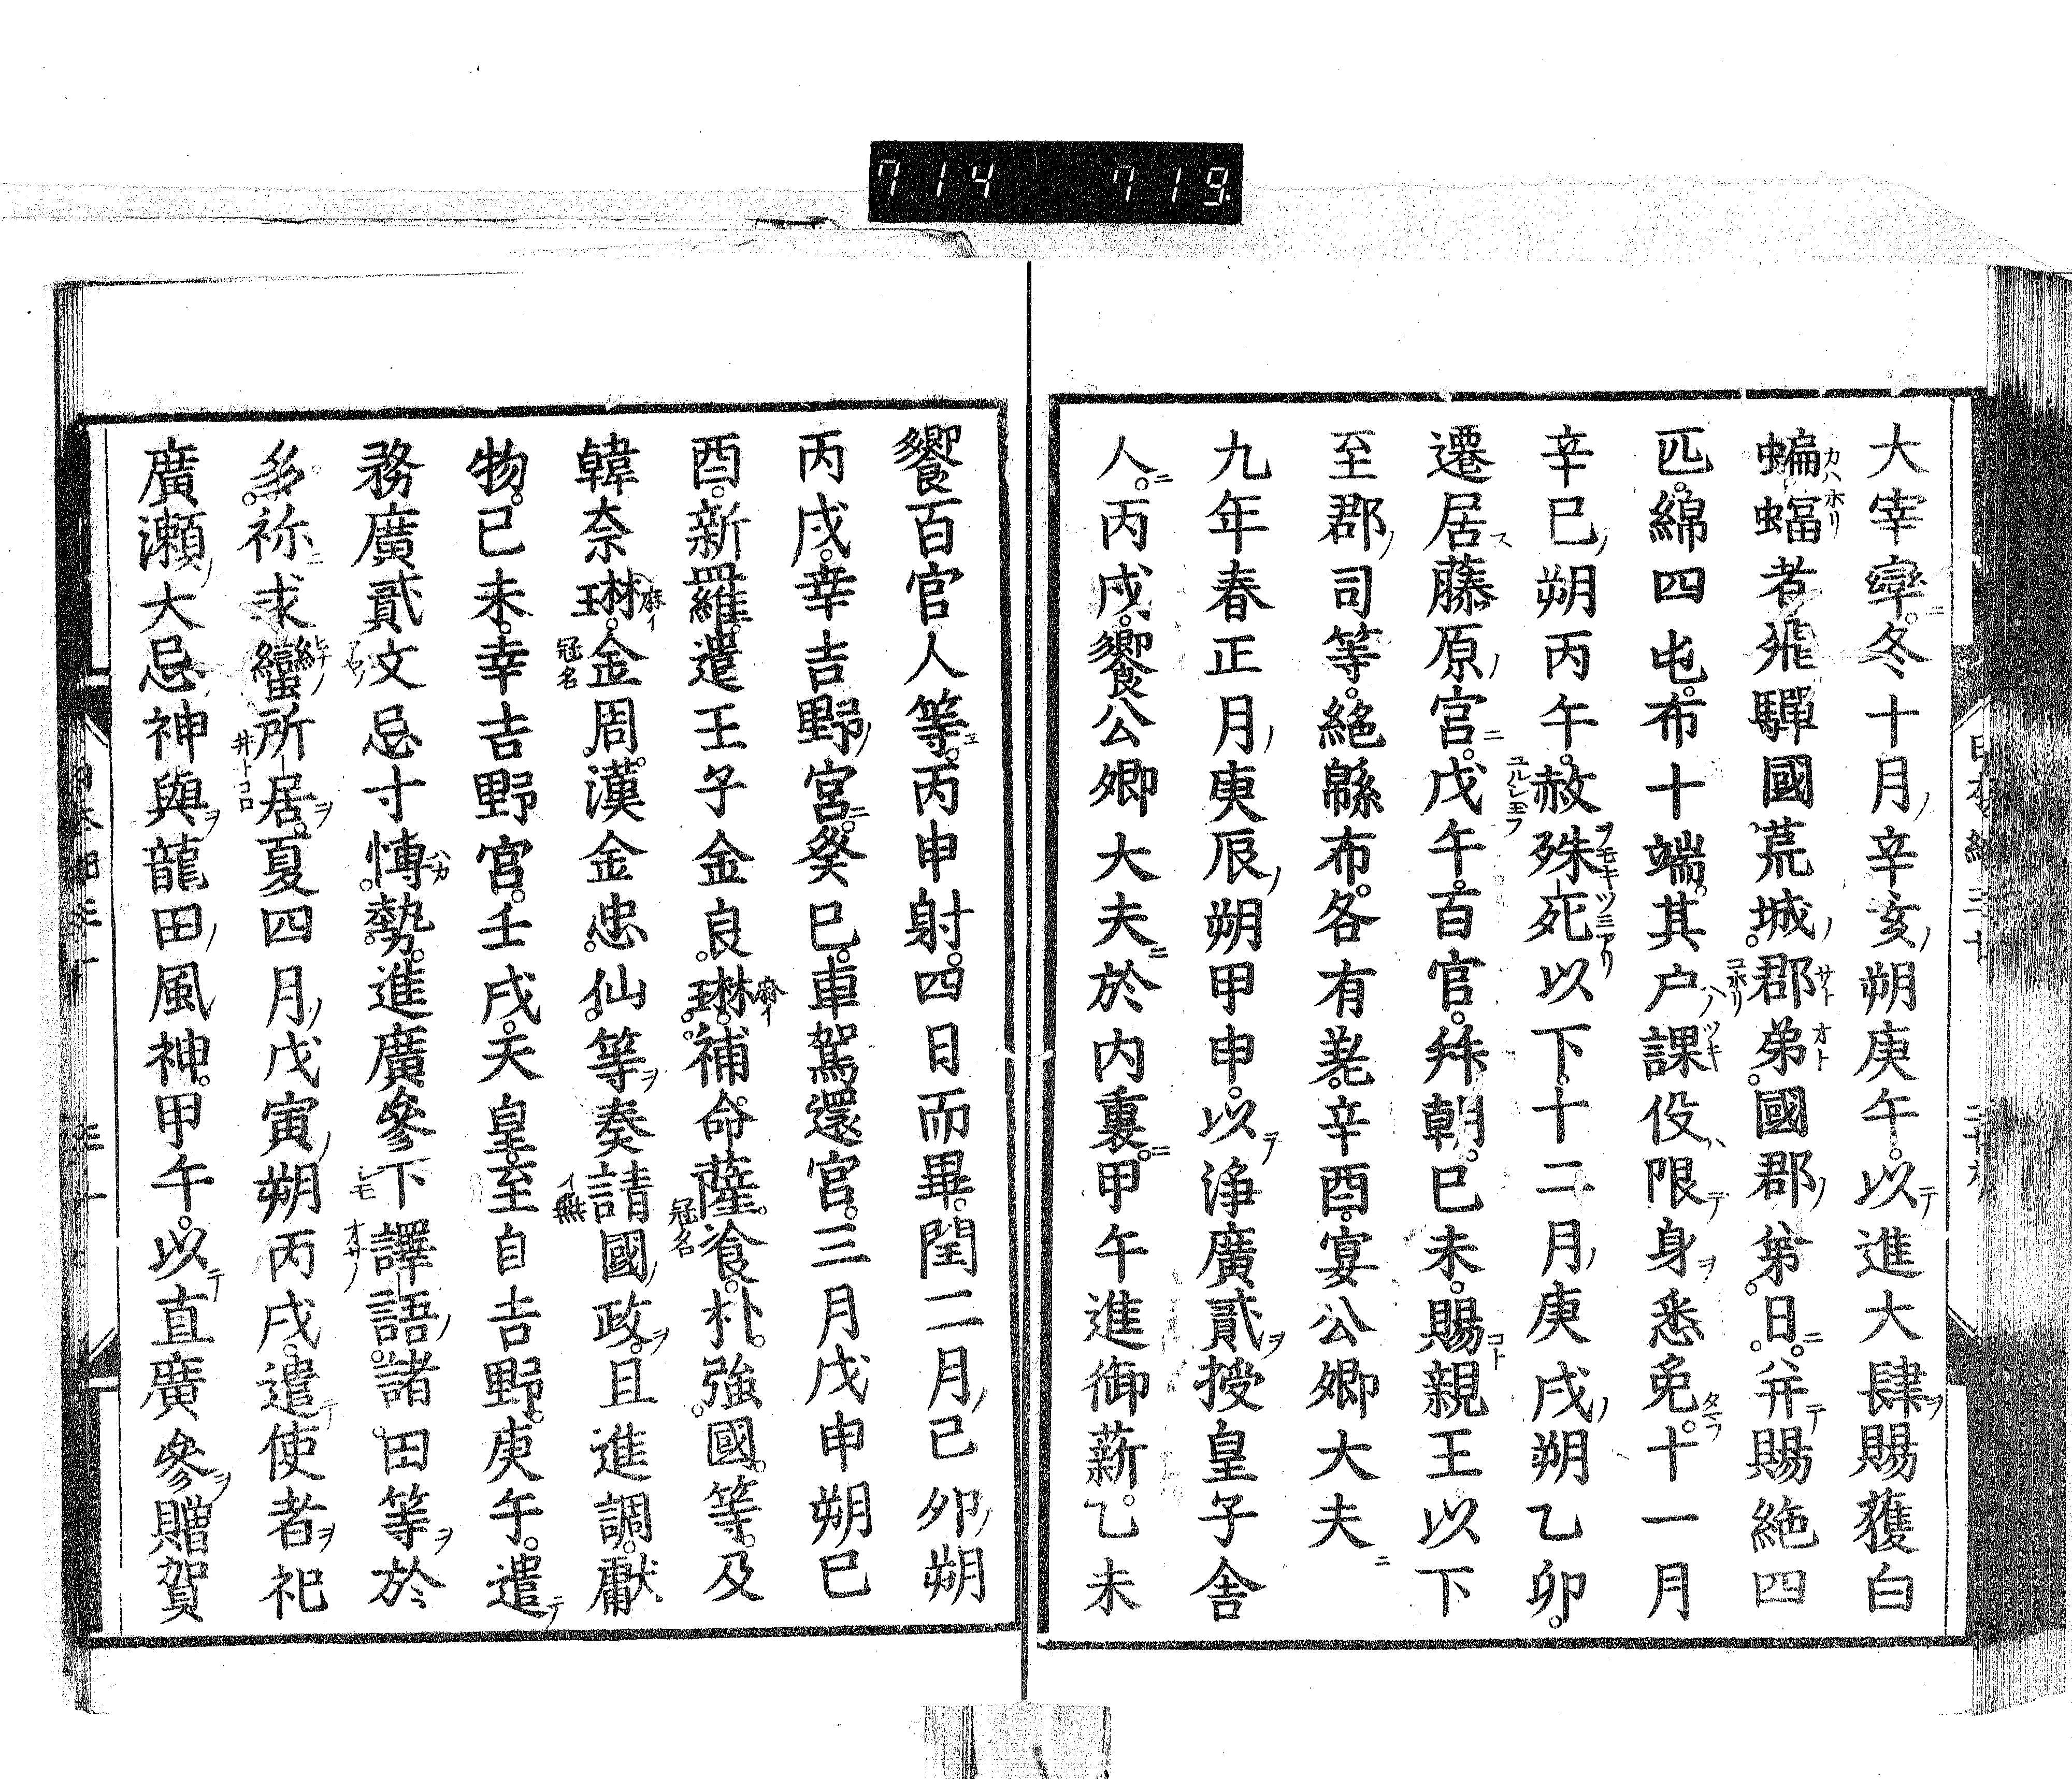 714 719
大宰率冬十月辛亥朔庚午以進大肆賜獲白
蝙蝠者飛驒國荒城郡弟國郡弟日并賜絁四
匹綿四屯布十端其戸課役限身悉免十一月
辛巳朔丙午赦殊死以下十二月庚戌朔乙卯
遷居藤原宮戊午百官拜朝己未賜親王以下
至郡司等絁緜布各有差辛酉宴公卿大夫
九年春正月庚辰朔甲申以淨廣貳授皇子舎
人丙戌饗公卿大夫於内裏甲午進御薪乙未
饗百官人等丙申射四日而畢閏二月己卯朔
丙戌幸吉野宮癸巳車駕還宮三月戊申朔己
酉新羅遣王子金良琳補命薩飡朴強國等及
韓奈麻金周漢金忠仙等奏請國政且進調獻
物己未幸吉野宮壬戌天皇至自吉野庚午遣
務廣貳文忌寸博勢進廣參下譯語諸田等於
多祢求蠻所居夏四月戊寅朔丙戌遣使者祀
廣瀬大忌神與龍田風神甲午以直廣參贈賀